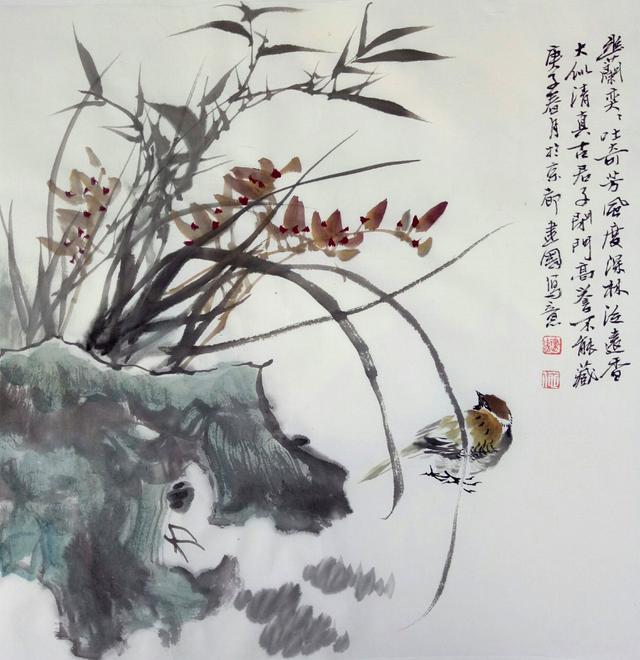 幽蘭奕〻吐奇芳風度深林泛遠香
大似清真古君子閉門高誉不能藏
庚子春月於京郊建國寫意